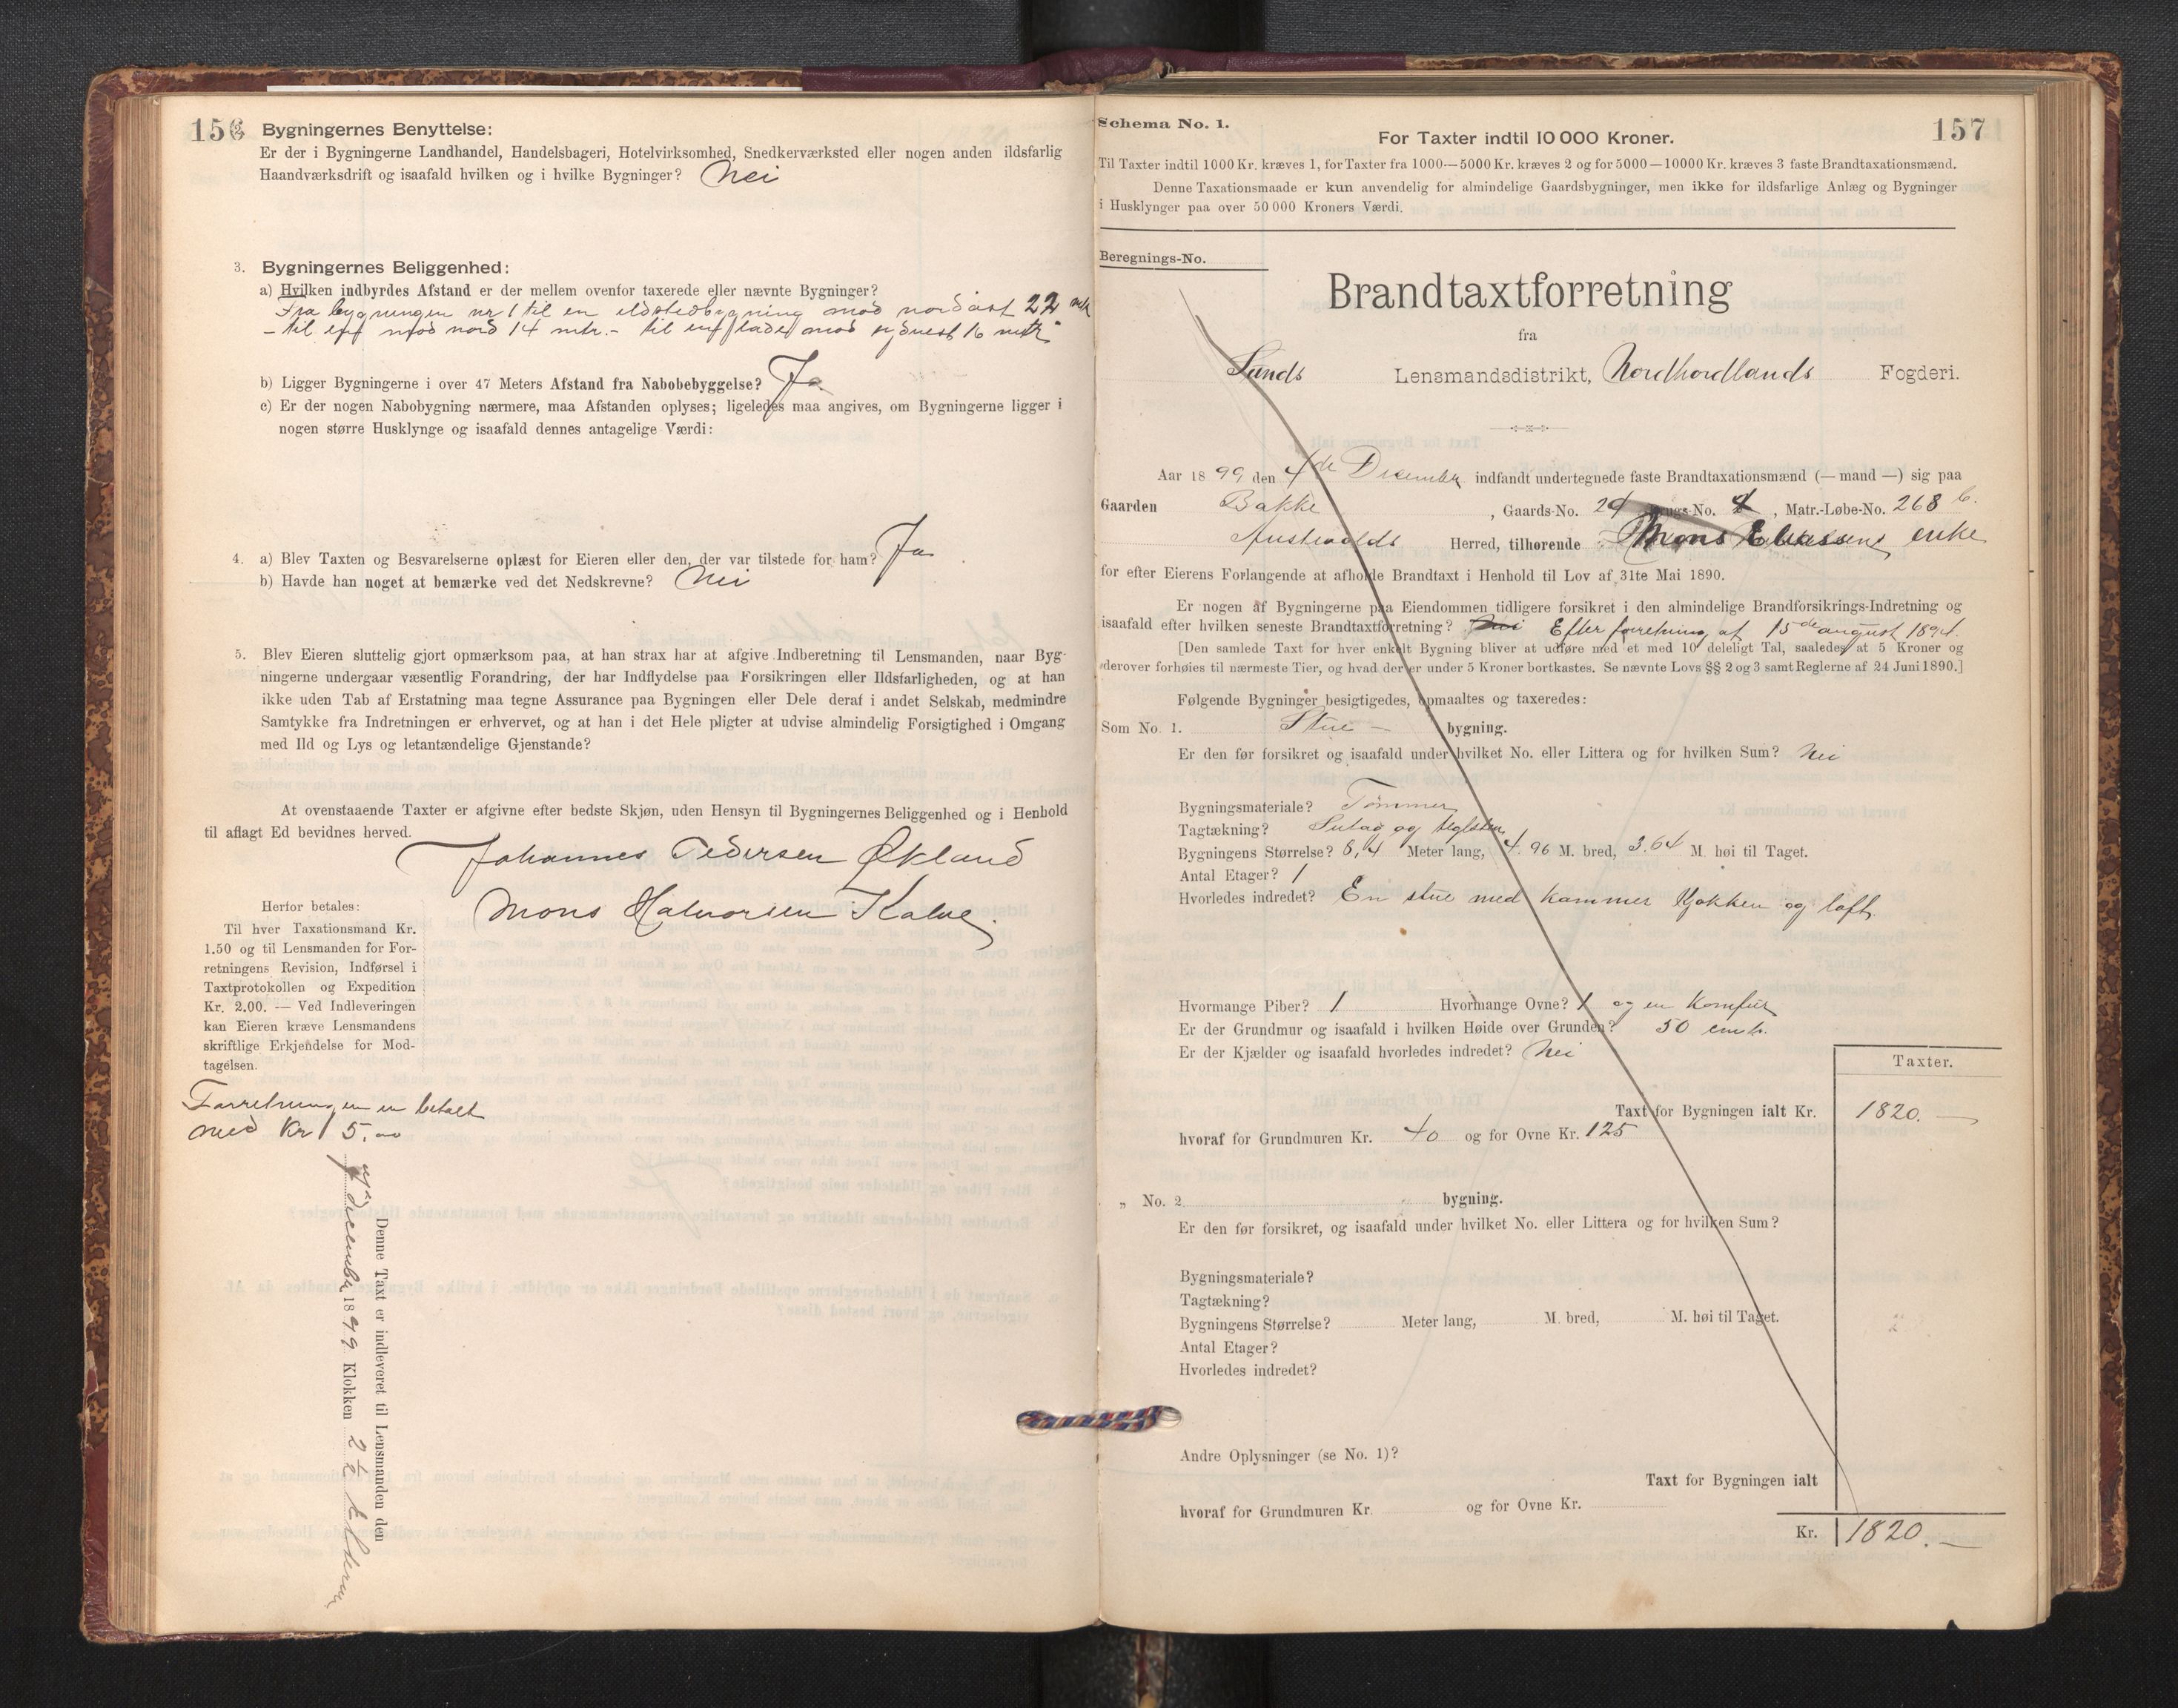 156
Bygningernes Benyttelse:
Er der i Bygningerne Landhandel, Handelsbageri, Hotelvirksomhed, Snedkerværksted eller nogen anden ildsfarlig
Haandværksdrift og isaafald hvilken og i hvilke Bygninger? Nei
3. Bygningernes Beliggenhed:
a) Hvilken indbyrdes Afstand er der mellem ovenfor taxerede eller nævnte Bygninger?
Fra bygningen nr 1 til en ildstedbygning mod nordøst 22 mtr
- til en mod nord 14 mtr. - til en lade mod sydvest 16 mtr
b) Ligger Bygningerne i over 47 Meters Afstand fra Nabobebyggelse? Ja
c) Er der nogen Nabobygning nærmere, maa Afstanden oplyses; ligeledes maa angives, om Bygningerne ligger i
nogen større Husklynge og isaafald dennes antagelige Værdi:
4. a) Blev Taxten og Besvarelserne oplæst for Eieren eller den, der var tilstede for ham? Ja
b) Havde han noget at bemærke ved det Nedskrevne? Nei
5. Blev Eieren sluttelig gjort opmærksom paa, at han strax har at afgive Indberetning til Lensmanden, naar Byg-
ningerne undergaar væsentlig Forandring, der har Indflydelse paa Forsikringen eller Ildsfarligheden, og at han
ikke uden Tab af Erstatning maa tegne Assurance paa Bygningen eller Dele deraf i andet Selskab, medmindre
Samtykke fra Indretningen er erhvervet, og at han i det Hele pligter at udvise almindelig Forsigtighed i Omgang
med Ild og Lys og letantændelige Gjenstande?
At ovenstaaende Taxter er afgivne efter bedste Skjøn, uden Hensyn til Bygningernes Beliggenhed og i Henhold
til aflagt Ed bevidnes herved.
Johannes Pedersen Økland
Mons Halvorsen Kalve
Herfor betales:
Til hver Taxationsmand Kr.
1.50 og til Lensmanden for For-
retningens Revision, Indførsel i
Taxtprotokollen og Expedition
Kr. 2.00. — Ved Indleveringen
kan Eieren kræve Lensmandens
skriftlige Erkjendelse for Mod-
tagelsen.
Forretningen er betalt
med Kr 5.00
Denne Taxt er indleveret til Lensmanden den
December 1899 Klokken 2
157
Schema No. 1.
For Taxter indtil 10 000 Kroner.
Til Taxter indtil 1000 Kr. kræves 1, for Taxter fra 1000—5000 Kr. kræves 2 og for 5000—10000 Kr. kræves 3 faste Brandtaxationsmænd.
Denne Taxationsmaade er kun anvendelig for almindelige Gaardsbygninger, men ikke for ildsfarlige Anlæg og Bygninger
i Husklynger paa over 50 000 Kroners Værdi.
Beregnings-No.
Brandtaxtforretning
fra
Sunds Lensmandsdistrikt, Nordhordlands Fogderi.
Aar 1899 den 4de December indfandt undertegnede faste Brandtaxationsmænd (— mand —) sig paa
Gaarden Bakke, Gaards-No. 24 Brugs-No. 4, Matr.-Løbe-No. 268 b.
Austevolds Herred, tilhørende Mons Eliassens enke
for efter Eierens Forlangende at afholde Brandtaxt i Henhold til Lov af 31te Mai 1890.
Er nogen af Bygningerne paa Eiendommen tidligere forsikret i den almindelige Brandforsikrings-Indretning og
isaafald efter hvilken seneste Brandtaxtforretning? Nei Efter forretning af 15de august 1894.
[Den samlede Taxt for hver enkelt Bygning bliver at udføre med et med 10 deleligt Tal, saaledes at 5 Kroner og
derover forhøies til nærmeste Tier, og hvad der er under 5 Kroner bortkastes. Se nævnte Lovs §§ 2 og 3 samt Reglerne af 24 Juni 1890.]
Følgende Bygninger besigtigedes, opmaaltes og taxeredes:
Som No. 1. Stue - bygning.
Er den før forsikret og isaafald under hvilket No. eller Littera og for hvilken Sum? Nei
Bygningsmateriale? Tømmer
Tagtækning? Sutag og teglsten
Bygningens Størrelse? 8,4 Meter lang, 4.96 M. bred, 3.64 M. høi til Taget.
Antal Etager? 1
Hvorledes indredet? En stue med kammer Kjøkken og loft
Hvormange Piber? 1 Hvormange Ovne? 1 og en komfur
Er der Grundmur og isaafald i hvilken Høide over Grunden? 50 cmtr.
Er der Kjælder og isaafald hvorledes indredet? Nei
Taxter.
Taxt for Bygningen ialt Kr. 1820. —
hvoraf for Grundmuren Kr. 40 og for Ovne Kr. 125
„ No. 2 bygning.
Er den før forsikret, og isaafald under hvilket No. eller Littera og for hvilken Sum?
Bygningsmateriale?
Tagtækning?
Bygningens Størrelse? Meter lang, M. bred, M. høi til Taget.
Antal Etager?
Hvorledes indredet?
Andre Oplysninger (se No. 1)?
Taxt for Bygningen ialt
hvoraf for Grundmuren Kr. og for Ovne Kr.
Kr. 1820. —